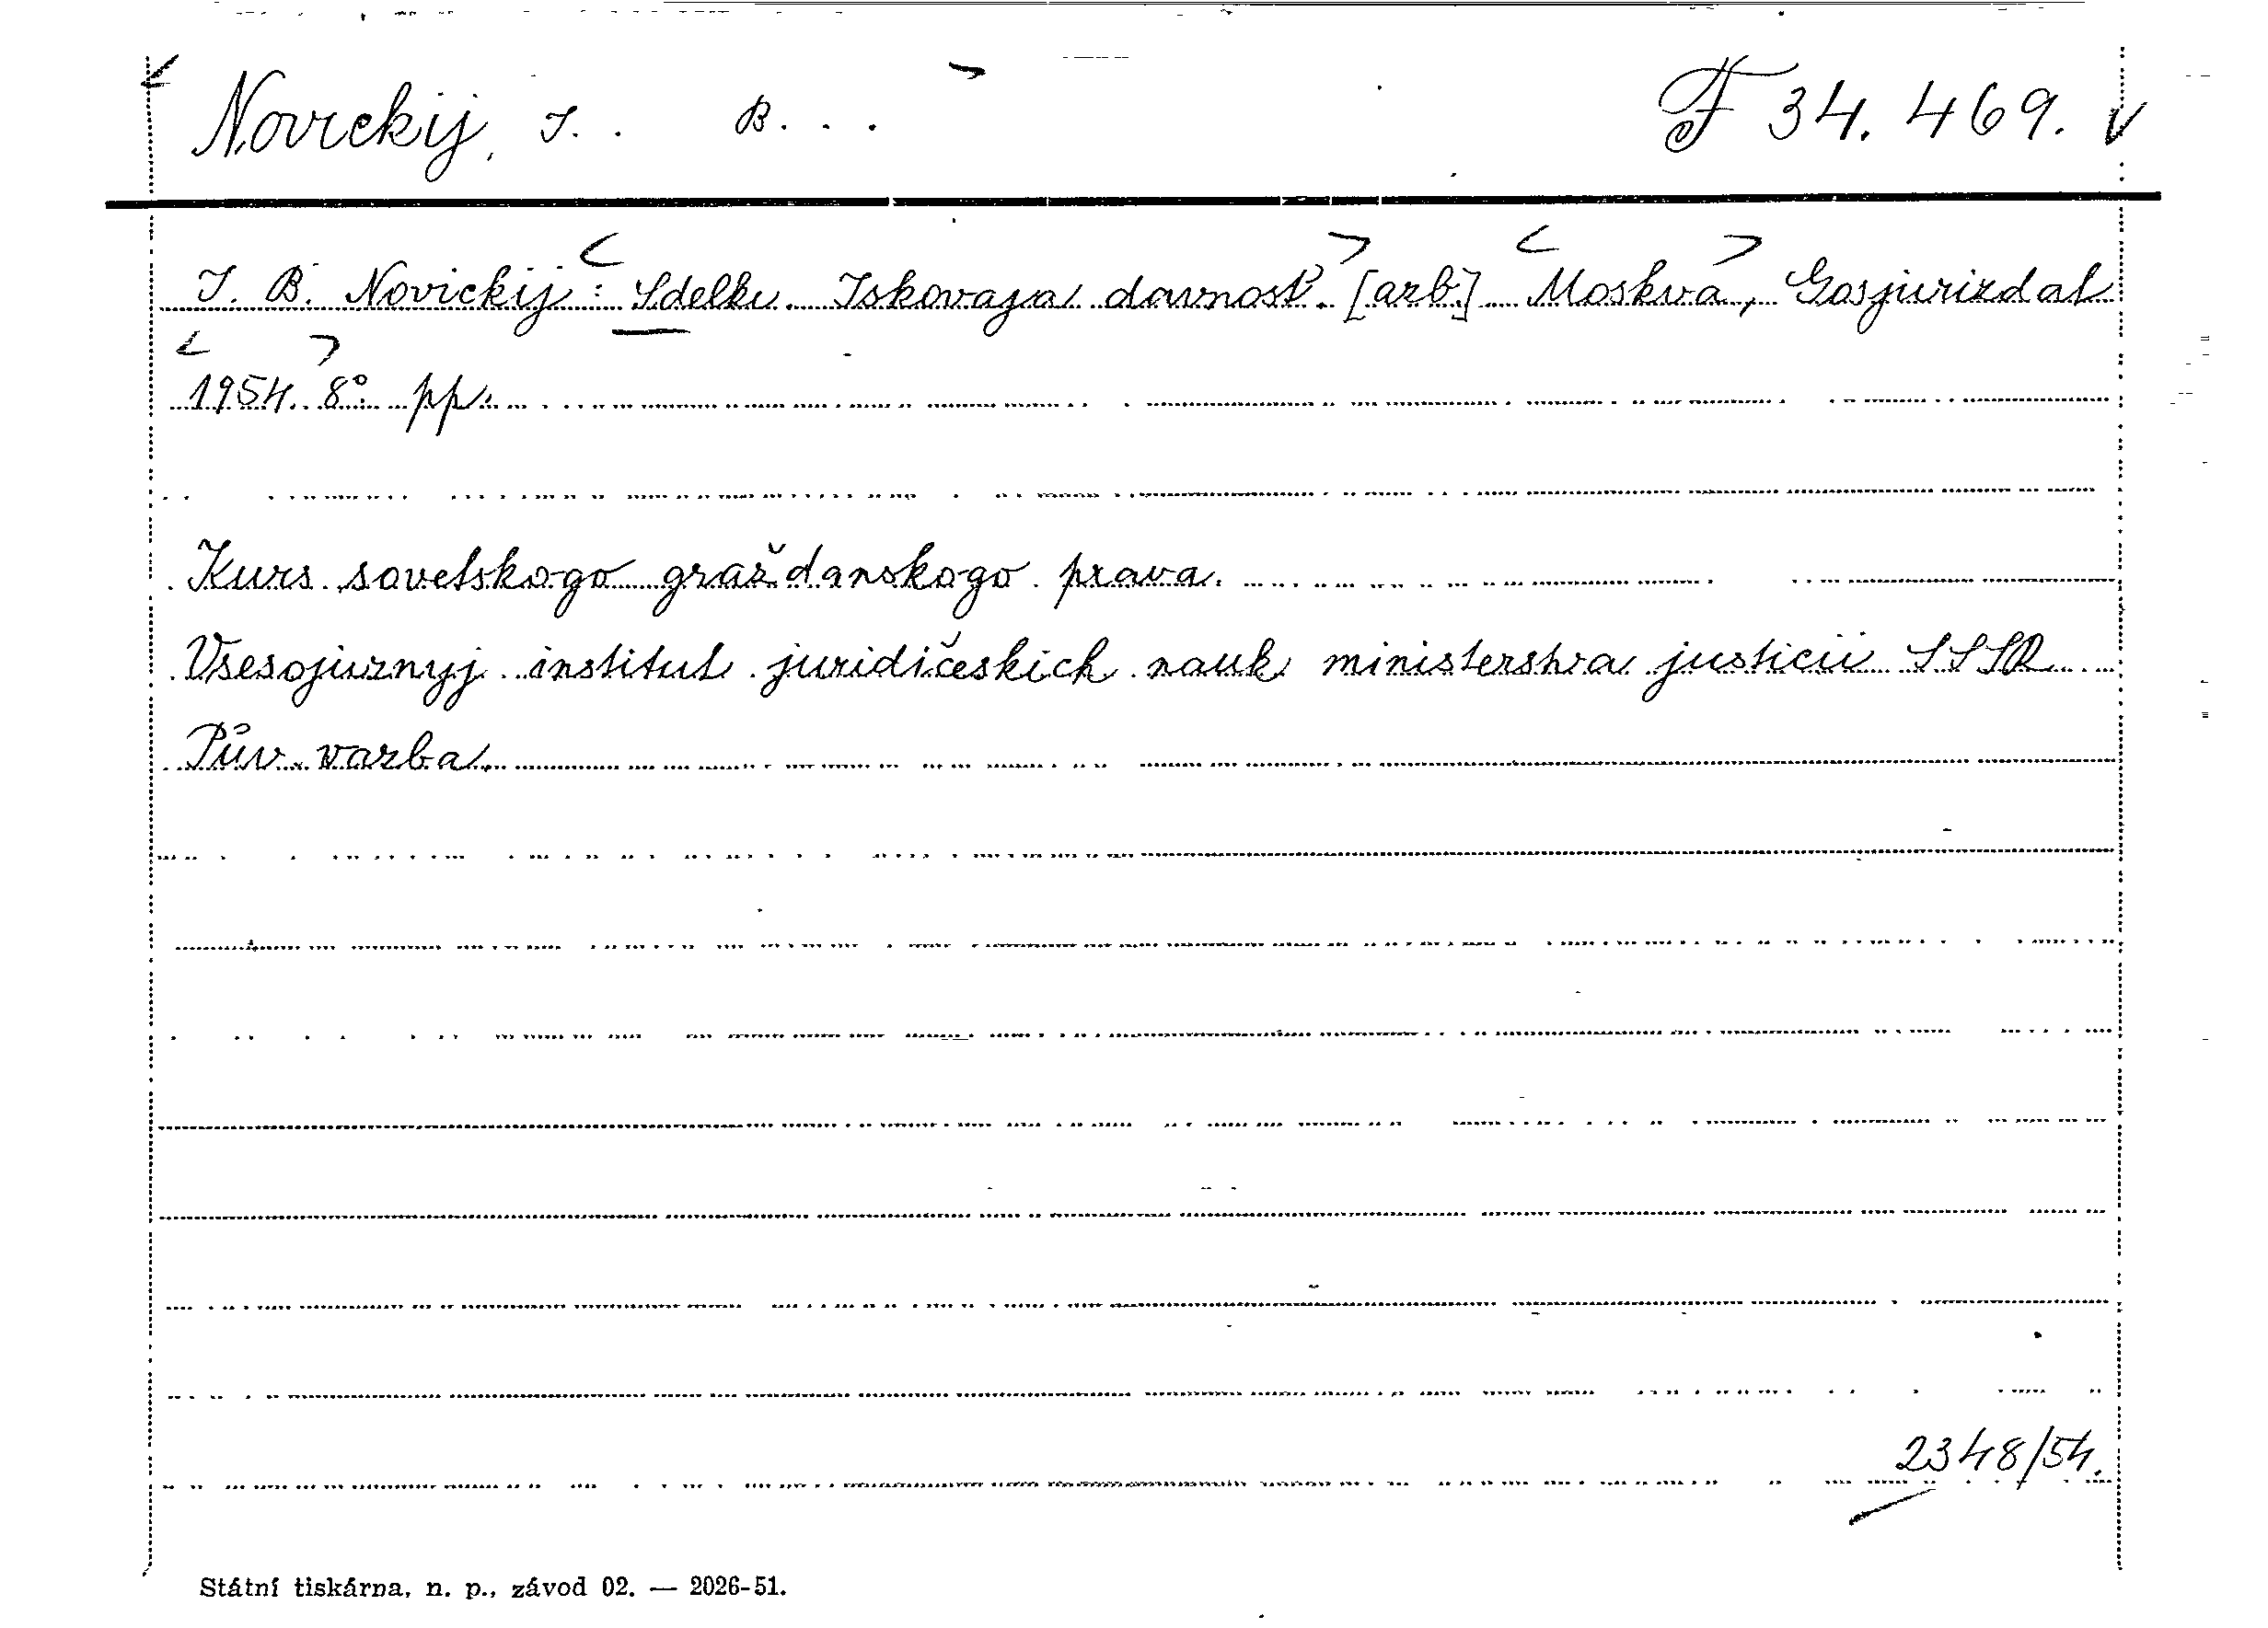 Novickij, I. . B. . .
F 34.469.
I. B. Novickij: Sdelki. Iskovaja davnost'. [azb.] Moskva, Gosjurizdat
1954. 8°. pp.
Kurs sovetskogo graždanskogo prava.
Vsesojuznyj institut juridičeskich nauk ministerstva justicii SSSR
Pův. vazba.
2348/54.
Státní tiskárna, n. p., závod 02. — 2026-51.